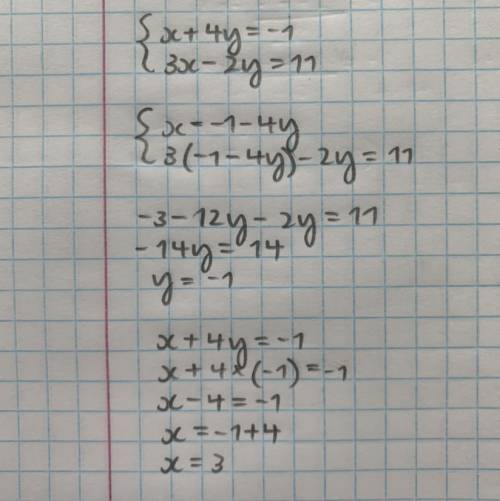 { x + 4y = -1
{ 3x - 2y = 11
{ x = -1 - 4y
{ 3(-1 - 4y) - 2y = 11
-3 - 12y - 2y = 11
-14y = 14
y = -1
x + 4y = -1
x + 4 * (-1) = -1
x - 4 = -1
x = -1 + 4
x = 3